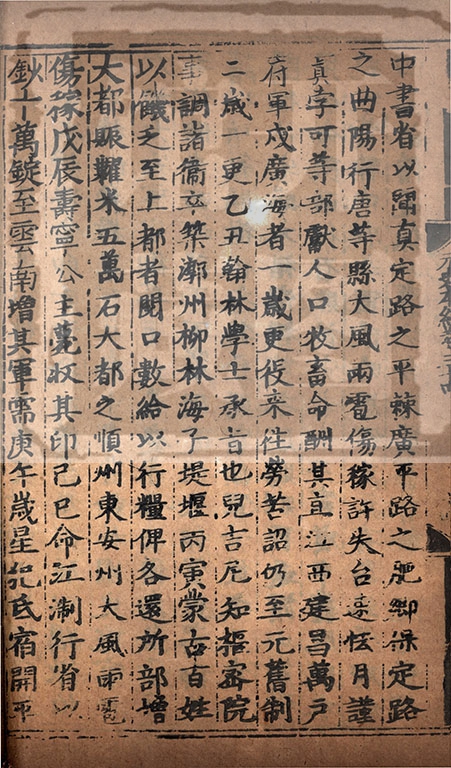 中書省以聞真定路之平棘廣平路之肥鄉保定路
之曲陽行唐等縣大風雨雹傷稼許失台速怯月謹
真孛可等部獻人口牧畜命酬其直江西建昌萬戶
府軍戍廣海者一歲更役来往勞苦詔仍至元舊制
二歲一更乙丑翰林學士承旨也兒吉尼知樞密院
事調諸衛卒築漷州柳林海子堤堰丙寅蒙古百姓
以饑乏至上都者閱口數給以行糧俾各還所部增
大都賑糶米五萬石大都之順州東安州大風雨雹
傷稼戊辰壽寧公主薨収其印己巳命江淛行省以
鈔十萬錠至雲南增其軍需庚午歲星犯氐宿開平